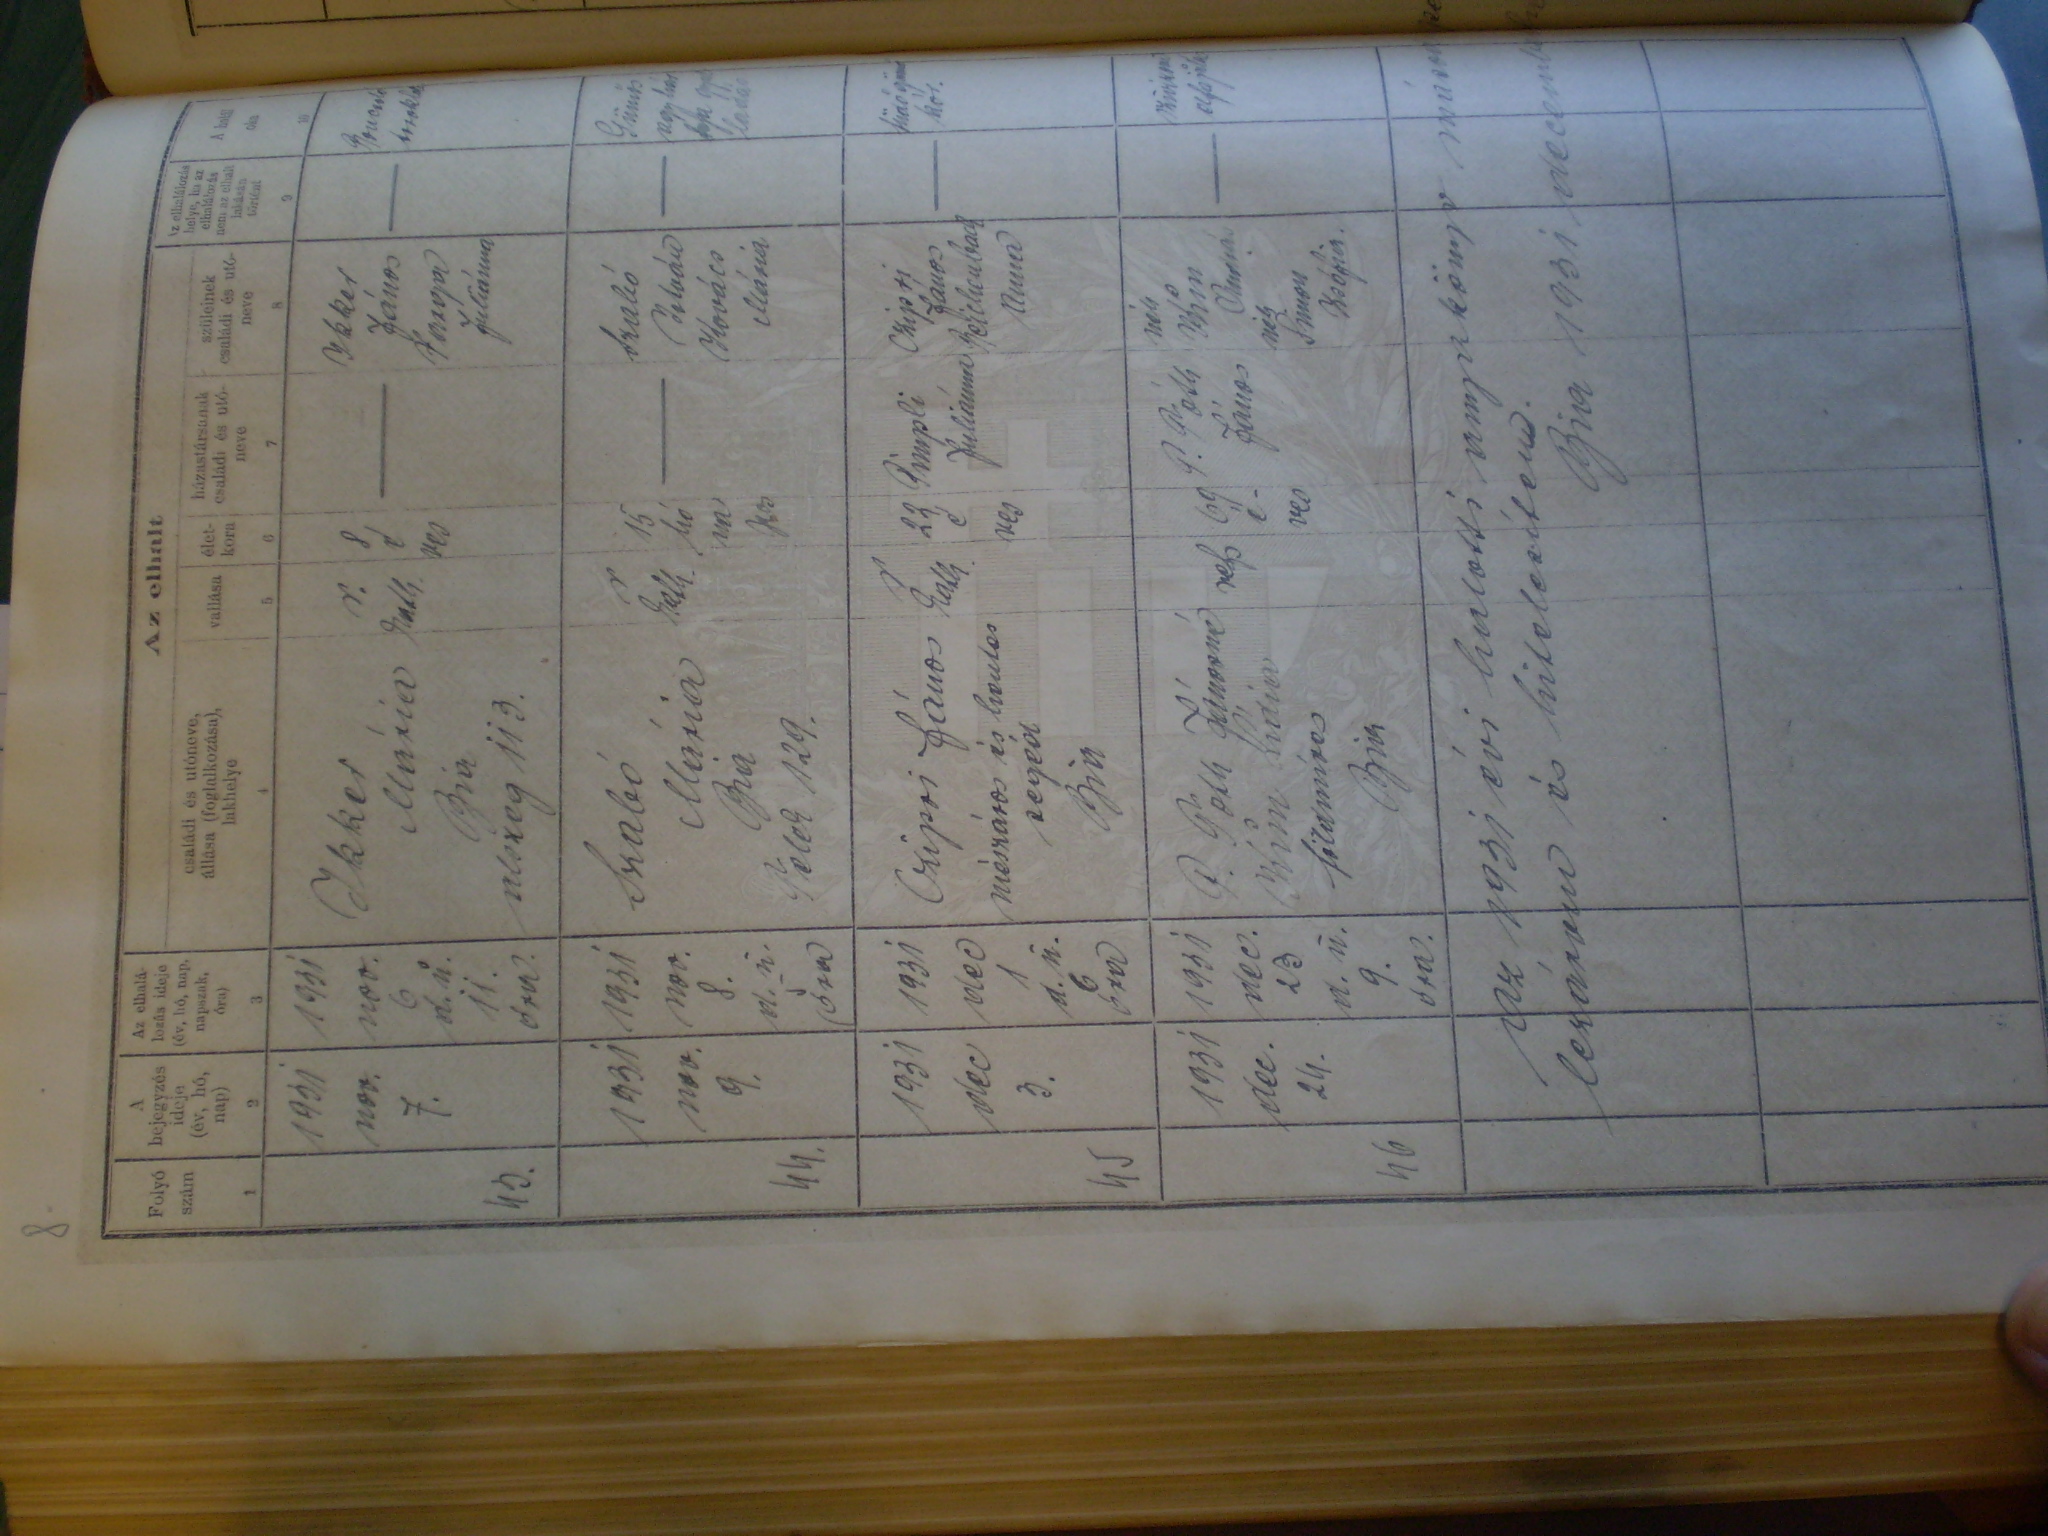 8.
Az elhalt
Folyó
szám
A
bejegyzés
ideje
(év, hó,
nap)
Az elhalá-
lozás ideje
(év, hó, nap,
napszak,
óra)
családi és utóneve,
állása (foglalkozása),
lakhelye
vallása
élet-
kora
házastársának
családi és utó-
neve
szüleinek
családi és utó-
neve
Az elhalálozás
helye, ha az
elhalálozás
nem az elhalt
lakásán
történt
A halál
oka
1
2
3
4
5
6
7
8
9
10
43.
1931
nov.
7.
1931
nov.
6
d.u.
11.
óra.
Ikker
Mária
Bia
113.
r.
kath.
8
é
ves
Ikker
János
Juliánna
44.
1931
nov.
9.
1931
nov.
8.
d.ü.
5
óra
Szabó
Mária
Bia
129.
r
kath.
15
hó
na
pos
Szabó
István
Kovács
Mária
Gümős
agyhár
45
1931
dec
3.
1931
dec
1
d.ü.
6
óra
Czipri János
mészáros és hentes
segéd
Bia
r
kath.
22
é
ves
Pimpli
Juliánna
János
Anna
tüdőgümő
kór.
46
1931
dec.
24.
1931
dec.
23
d.ü.
9.
óra.
P. Tóth Jánosné
Lidia
földmíves
Bia
ref
69
é-
ves
P. Tóth
János
néh
néh
Simon
Zsófia.
Az 1931 évi halotti anyakönyv
lezáram és hitelesítem.
Bia 1931 decemb